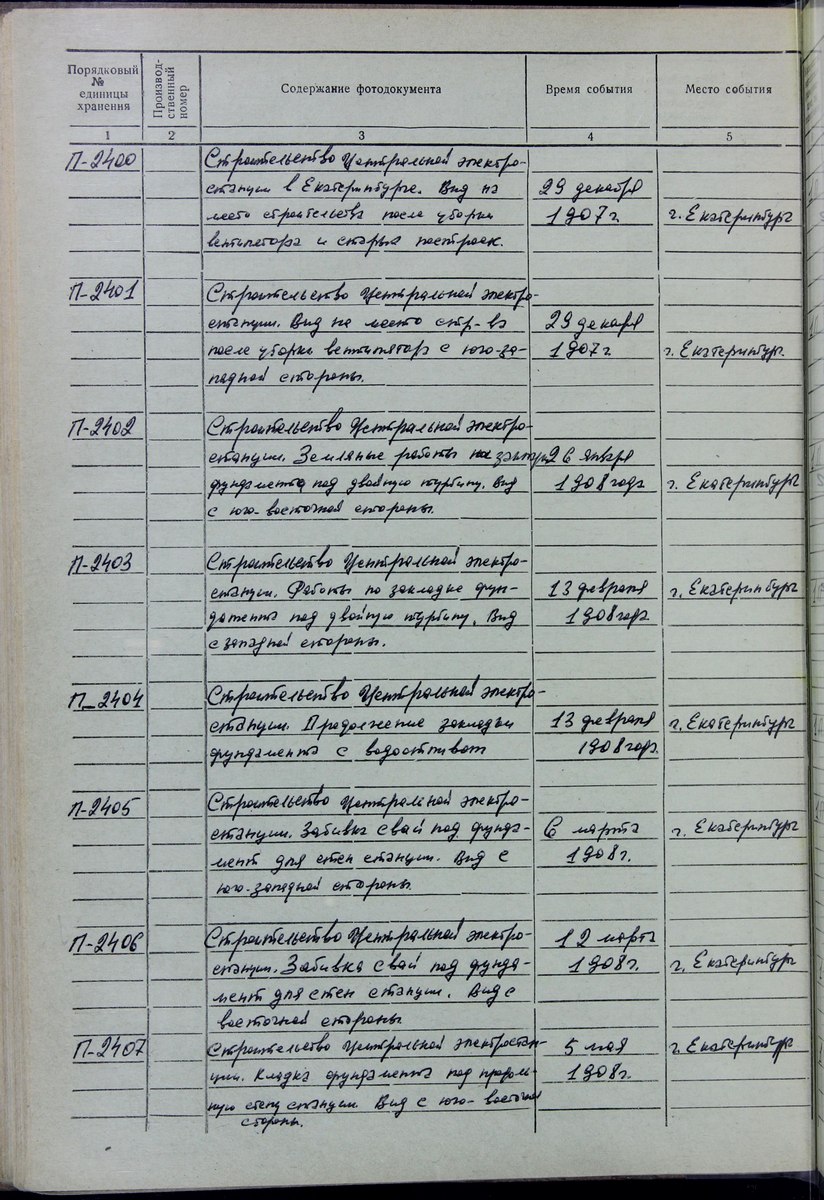 Порядковый № единицы хранения
Производ-ственный номер
Содержание фотодокумента
Время события
Место события
1 2 3 4 5
П-2400 Строительство Центральной электро-
станции в Екатеринбурге. Вид на 29 декабря
место строительства после уборки 1907 г. г. Екатеринбург
вентилятора и старых построек.
П-2401 Строительство Центральной электро-
станции. Вид на место стр-ва 29 декабря
после уборки вентилятора с юго-за- 1907 г. г. Екатеринбург.
падной стороны.
П-2402 Строительство Центральной электро-
станции. Земляные работы 26 января
фундамента под двойную турбину. Вид 1908 года г. Екатеринбург
с юго-восточной стороны.
П-2403 Строительство Центральной электро-
станции. Работы по закладке фун- 13 февраля г. Екатеринбург
дамента под двойную турбину. Вид 1908 года.
с западной стороны.
П-2404 Строительство Центральной электро-
станции. Продолжение закладки 13 февраля г. Екатеринбург
фундамента с водоотливом 1908 года.
П-2405 Строительство Центральной электро-
станции. Забивка свай под фунда- 6 марта г. Екатеринбург
мент для стен станции. Вид с 1908 г.
юго-западной стороны.
П-2406 Строительство Центральной электро- 12 марта
станции. Забивка свай под фунда- 1908 г. г. Екатеринбург
мент для стен станции. Вид с
восточной стороны
П-2407 Строительство Центральной электростан- 5 мая г. Екатеринбург
ции. Кладка фундамента под продоль- 1908 г.
ную стену станции. Вид с юго-восточной
стороны.